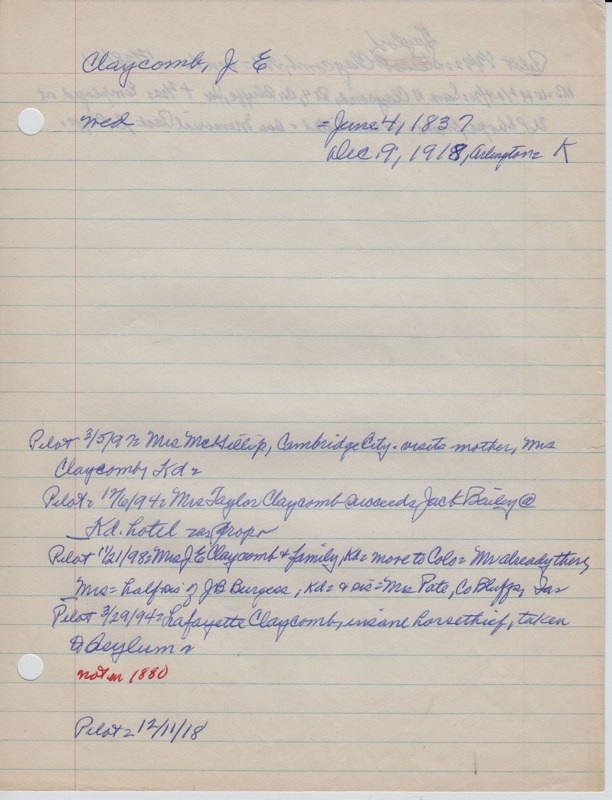 Claycomb, J. E.
med - June 4, 1837
Dec. 9, 1918, Arlington = K
Pilot 3/5/97 = Mrs McKillip, Cambridge City. visits mother, Mrs
Claycomb, Kd =
Pilot = 12/6/94 = Mrs Taylor Claycomb succeeds Jack Bailey @
Kd. hotel as propr
Pilot 11/21/98 = Mrs J E Claycomb & family, Kd = move to Colo = Mr already there,
Mrs = half sis of J B Burgess, Kd = & sis = Mrs Pate, Co Bluffs, Ia =
Pilot 3/29/94 = Lafayette Claycomb, insane horsethief, taken
to Asylum =
not in 1880
Pilot = 12/11/18